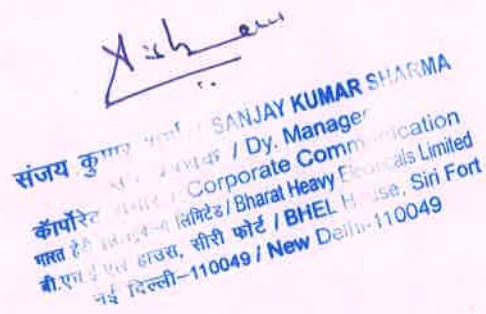 संजय कुमार / SANJAY KUMAR SHARMA
/ Dy. Manager
कॉर्पोरेट / Corporate Communication
भारत हैवी लिमिटेड / Bharat Heavy Electricals Limited
बी.एच.ई.एल. हाउस, सीरी फोर्ट / BHEL House, Siri Fort
नई दिल्ली-110049 / New Delhi-110049